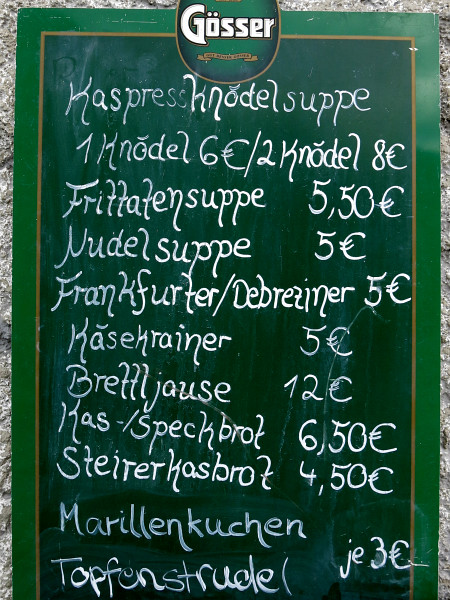 Gösser
Kaspressknödelsuppe
1 Knödel 6€/2 Knödel 8€
Frittatensuppe 5,50€
Nudelsuppe 5€
Frankfurter/Debreziner 5€
Käsekrainer 5€
Brettljause 12€
Kas-/Speckbrot 6,50€
Steirerkasbrot 4,50€
Marillenkuchen
je 3€
Topfenstrudel